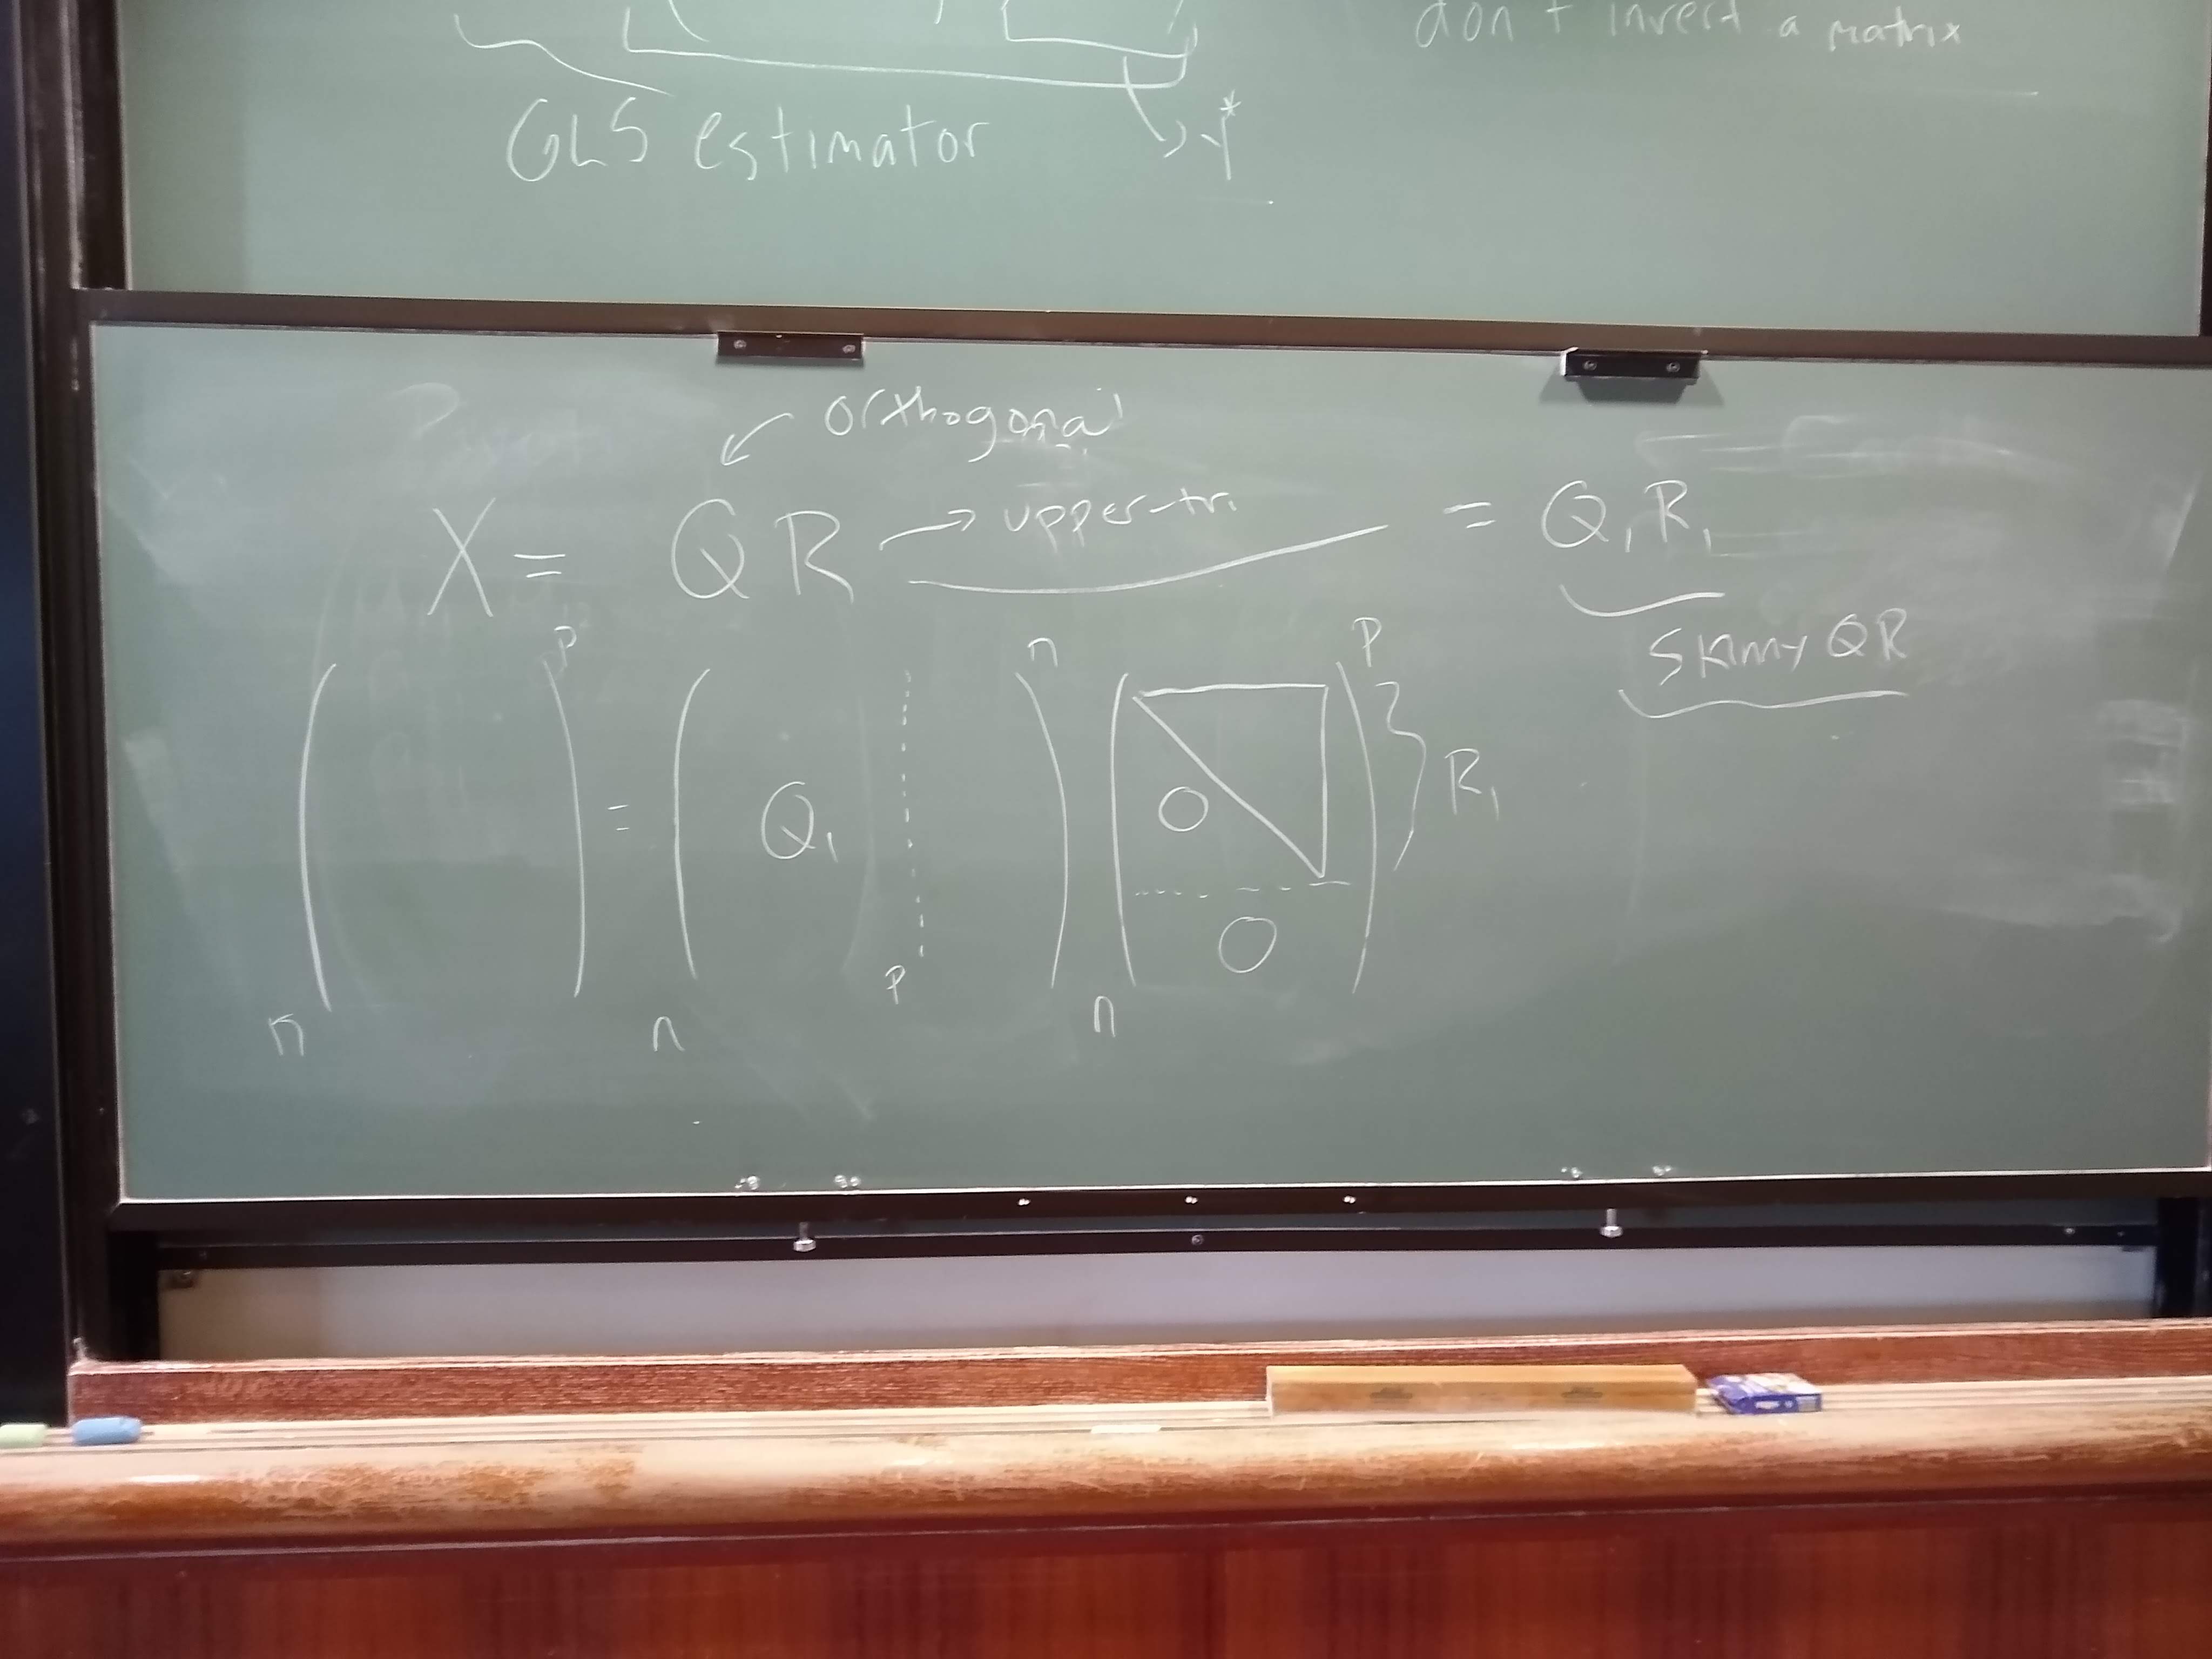 don't invert a matrix
GLS estimator
Y*
orthogonal
X = QR → upper-tri = Q₁R₁
Skinny QR
p n p
= Q₁ 0 R₁
0
p
n n n